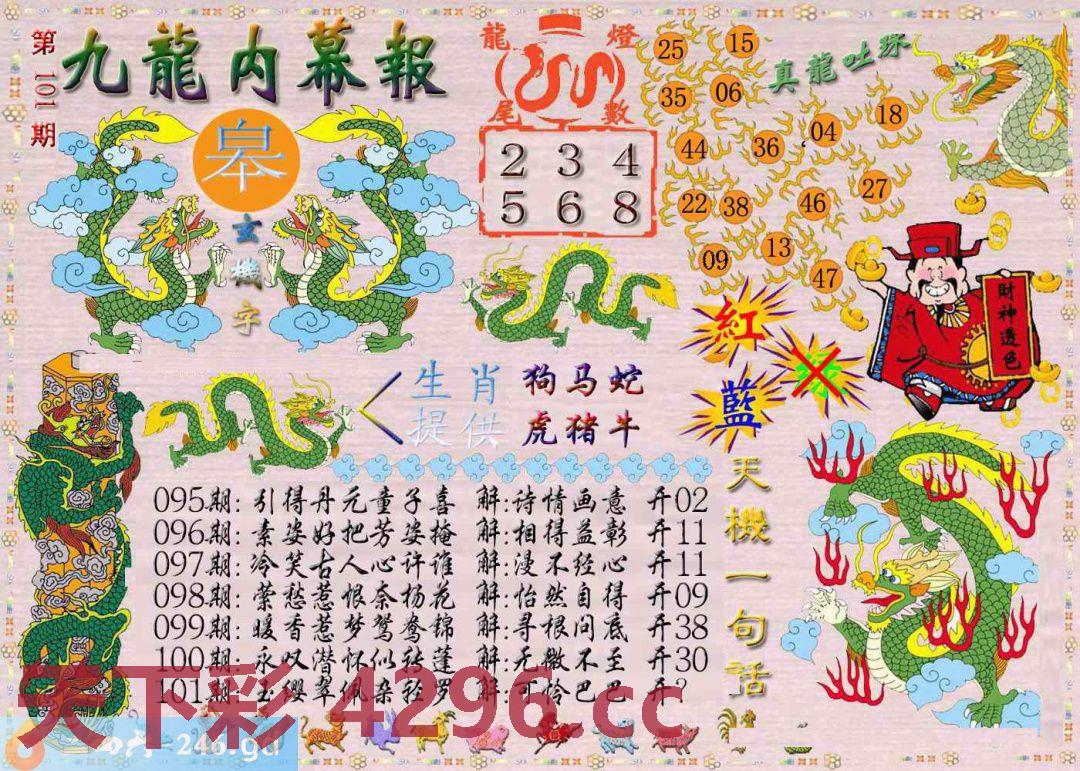 第101期
九龍内幕報
皋
玄機字
龍燈尾數
2 3 4
5 6 8
真龍吐珠
25 15
35 06
44 36 04 18
22 38 46 27
09 13 47
紅
藍
財神透色
生肖提供
狗马蛇
虎猪牛
095期:引得丹元童子喜 解:诗情画意 开02
096期:素姿好把芳姿掩 解:相得益彰 开11
097期:冷笑古人心许谁 解:漫不经心 开11
098期:萦愁惹恨奈杨花 解:怡然自得 开09
099期:暖香惹梦鸳鸯锦 解:寻根问底 开38
100期:永叹潜怀似转蓬 解:无微不至 开30
101期:玉缨翠佩杂轻罗 解:可怜巴巴 开?
天機一句話
天下彩 4296.cc
=246.gd